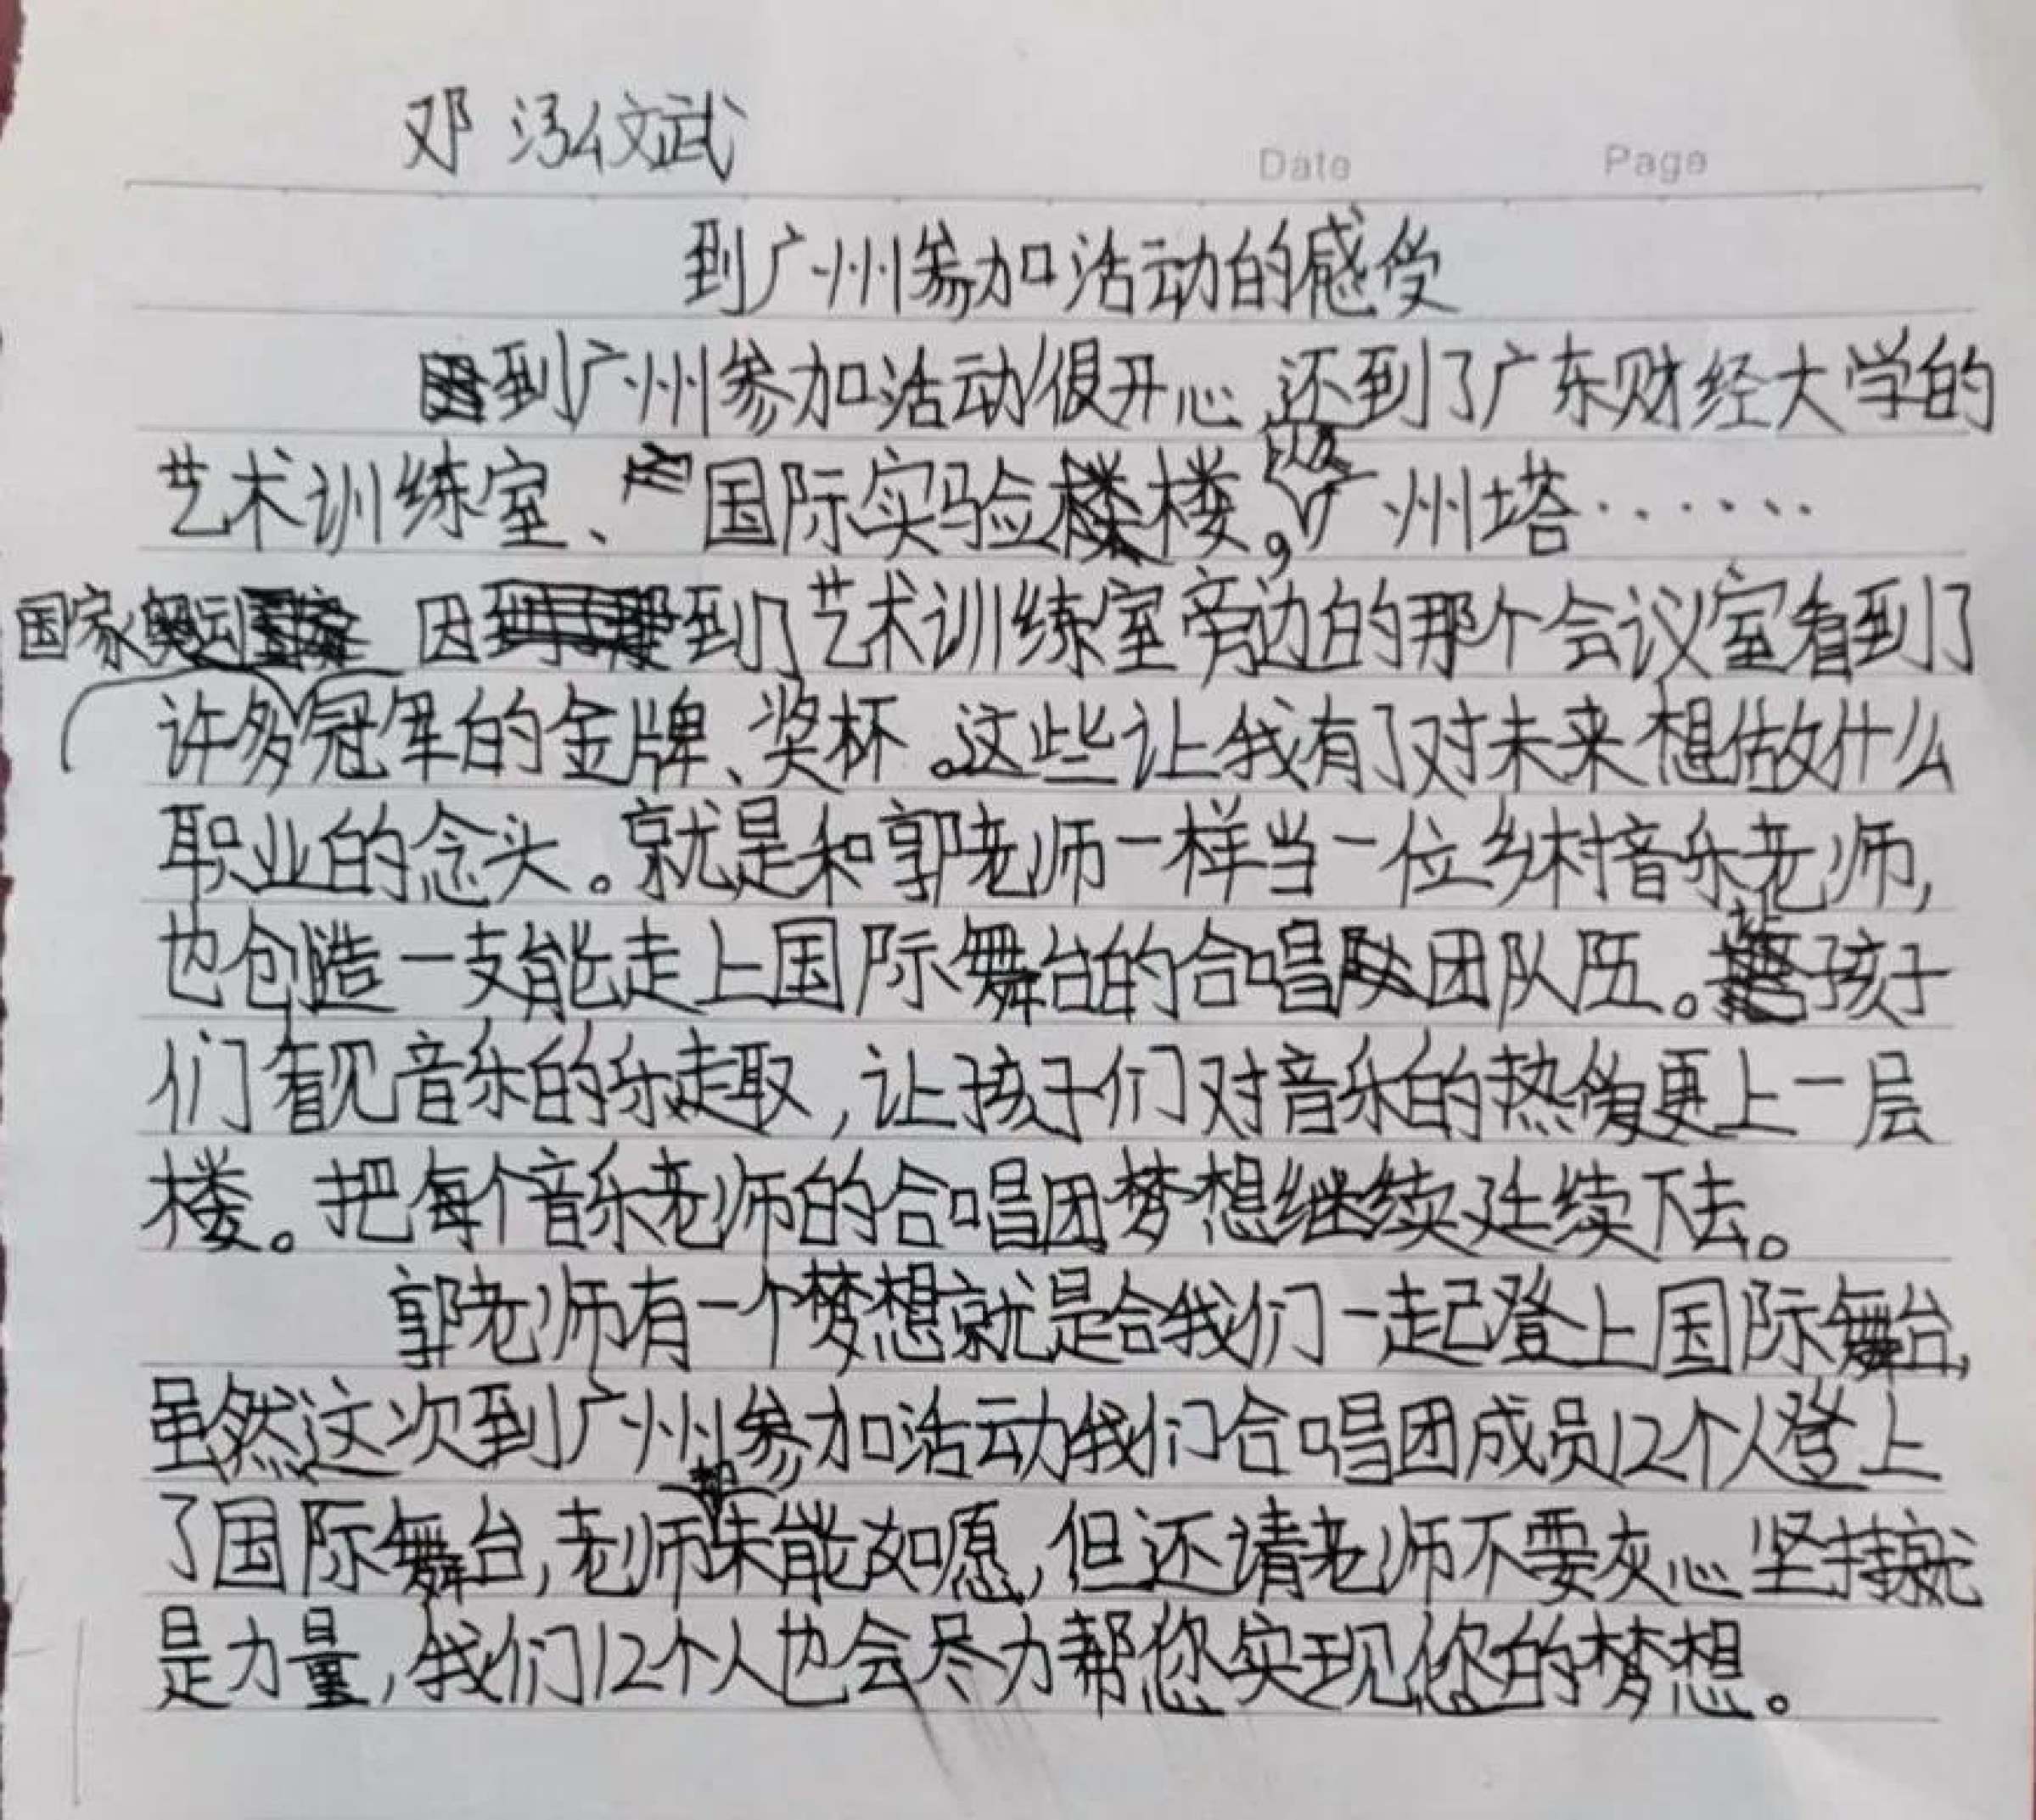 邓泓文武
Date Page
到广州参加活动的感受
到广州参加活动很开心,还到了广东财经大学的
艺术训练室、国际实验楼,以及广州塔……
因到了艺术训练室旁边的那个会议室看到了
许多国家奥运冠军的金牌、奖杯。这些让我有了对未来想做什么
职业的念头。就是和郭老师一样当一位乡村音乐老师,
也创造一支能走上国际舞台的合唱团队伍。让孩子
们看见音乐的乐趣,让孩子们对音乐的热爱更上一层
楼。把每个音乐老师的合唱团梦想继续延续下去。
郭老师有一个梦想就是合我们一起登上国际舞台,
虽然这次到广州参加活动我们合唱团成员12个人登上
了国际舞台,老师却未能如愿,但还请老师不要灰心坚持就
是力量,我们12个人也会尽力帮您实现您的梦想。